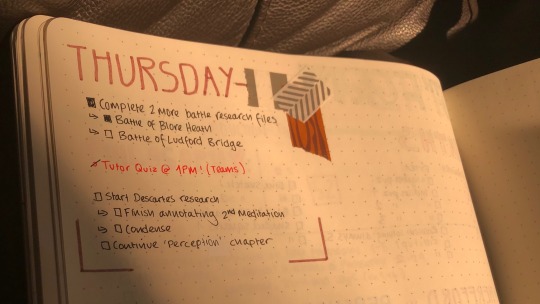 THURSDAY
Complete 2 More battle research files
Battle of Blore Heath
Battle of Ludford Bridge
Tutor Quiz @ 1PM! (Teams)
Start Descartes research
Finish annotating 2nd Meditation
Condense
Continue 'Perception' chapter